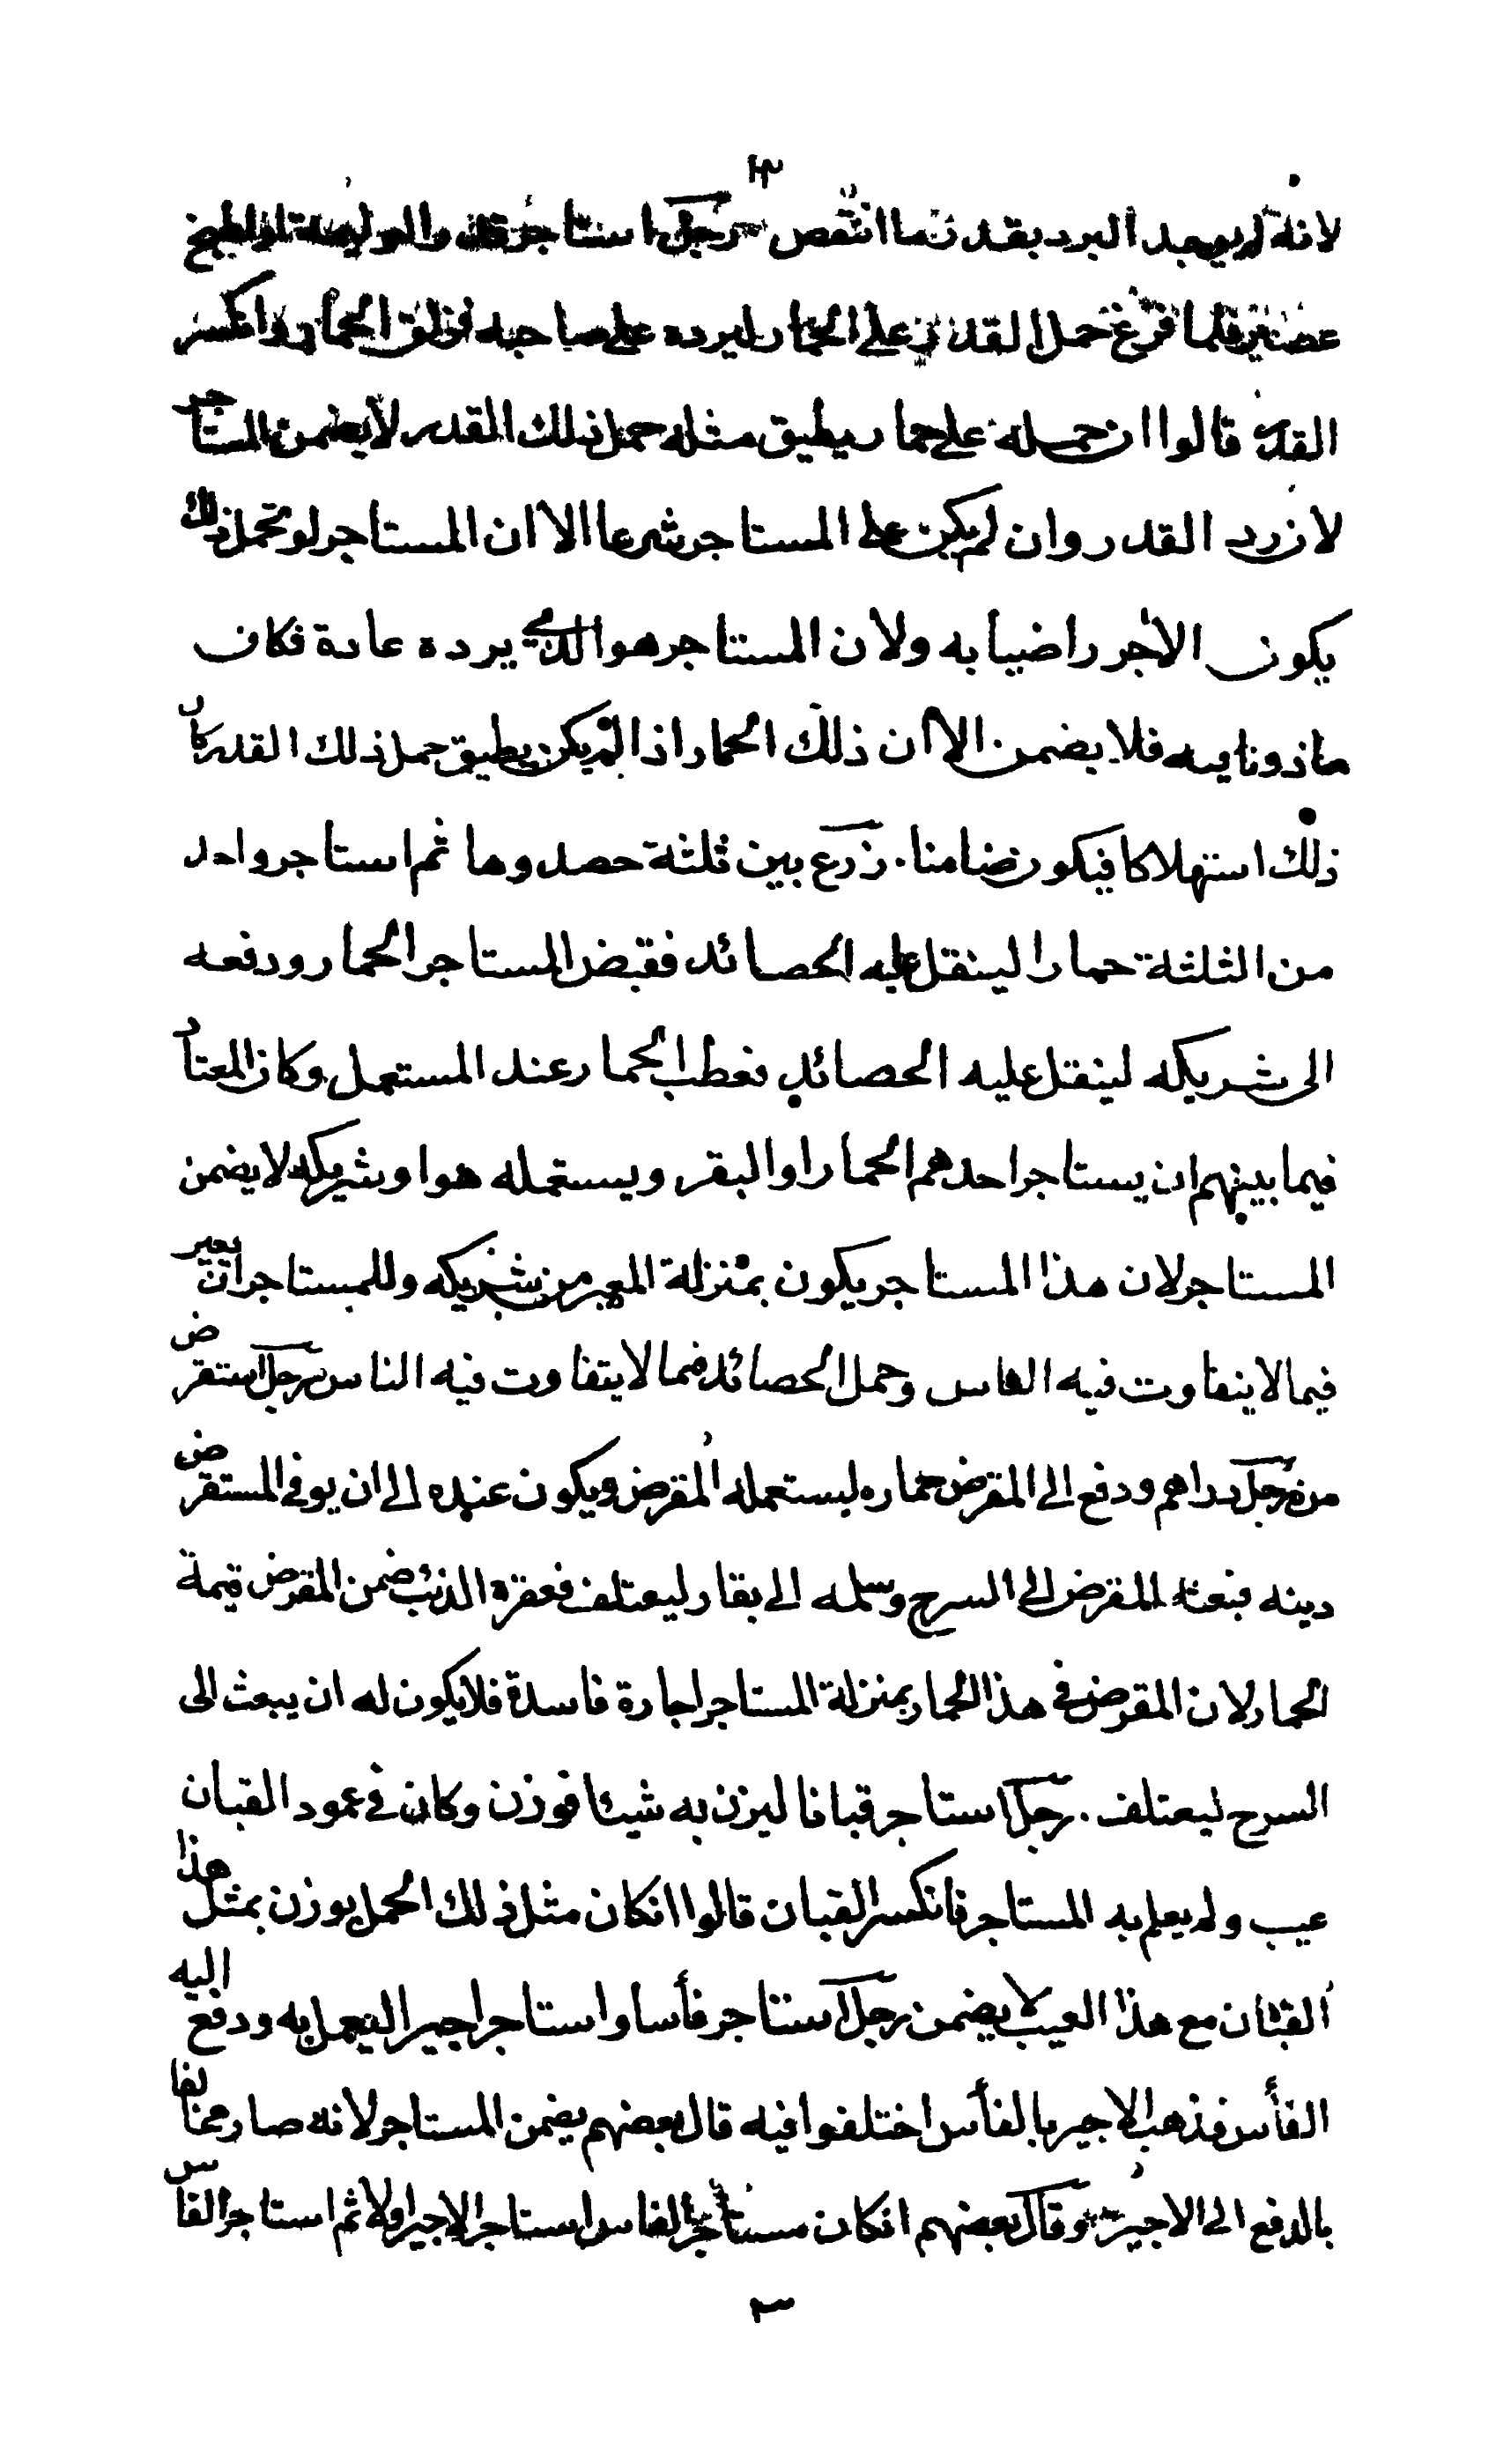 لانه لم يجد البرد بقدر ما انتقص رجل استاجر قدرا
فلما فرغ حمل القدر على الحمار ليرده على صاحبه فزلق الحمار وانكسر
القدر قالوا ان حمله على حمار يطيق مثله حمل ذلك القدر لا يضمن المستاجر
لان رد القدر وان لم يكن على المستاجر شرعا الا ان المستاجر لو تحمل ذلك
يكون الاجر راضيا به ولان المستاجر هو الذي يرده عادة فكان
ماذونا فيه فلا يضمن الا ان ذلك الحمار اذا لم يكن يطيق حمل ذلك القدر كان
ذلك استهلاكا فيكون ضامنا . زرع بين ثلثة حصدوها ثم استاجر واحد
من الثلثة حمارا لينقل عليه الحصائد فقبض المستاجر الحمار ودفعه
الى شريكه لينقل عليه الحصائد فعطب الحمار عند المستعمل وكان المعتاد
فيما بينهم ان يستاجر احدهم الحمار او البقر ويستعمله هو او شريكه لا يضمن
المستاجر لان هذا المستاجر يكون بمنزلة المعير من شريكه وللمستاجر ان يعير
فيما لا يتفاوت فيه الناس وحمل الحصائد فما لا يتفاوت فيه الناس رجل استقرض
من رجل دراهم ودفع الى المقرض حماره ليستعمله المقرض ويكون عنده الى ان يوفي المستقرض
دينه فبعثه المقرض الى السرح وسلمه الى بقار ليعتلف فعقره الذئب ضمن المقرض قيمة
الحمار لان المقرض في هذا الحمار بمنزلة المستاجر اجارة فاسدة فلا يكون له ان يبعث الى
السرح ليعتلف . رجل استاجر قبانا ليزن به شيئا فوزن وكان في عمود القبان
عيب ولم يعلم به المستاجر فانكسر القبان قالوا انكان مثل ذلك الحمل يوزن بمثل هذا
القبان مع هذا العيب لا يضمن رجل استاجر فأسا واستاجر اجيرا ليعمل به ودفع اليه
الفأس فذهب الاجير بالفأس اختلفوا فيه قال بعضهم يضمن المستاجر لانه صار مخالفا
بالدفع الى الاجير وقال بعضهم انكان مستأجر الفاس استاجر الاجير اولا ثم استاجر الفاس